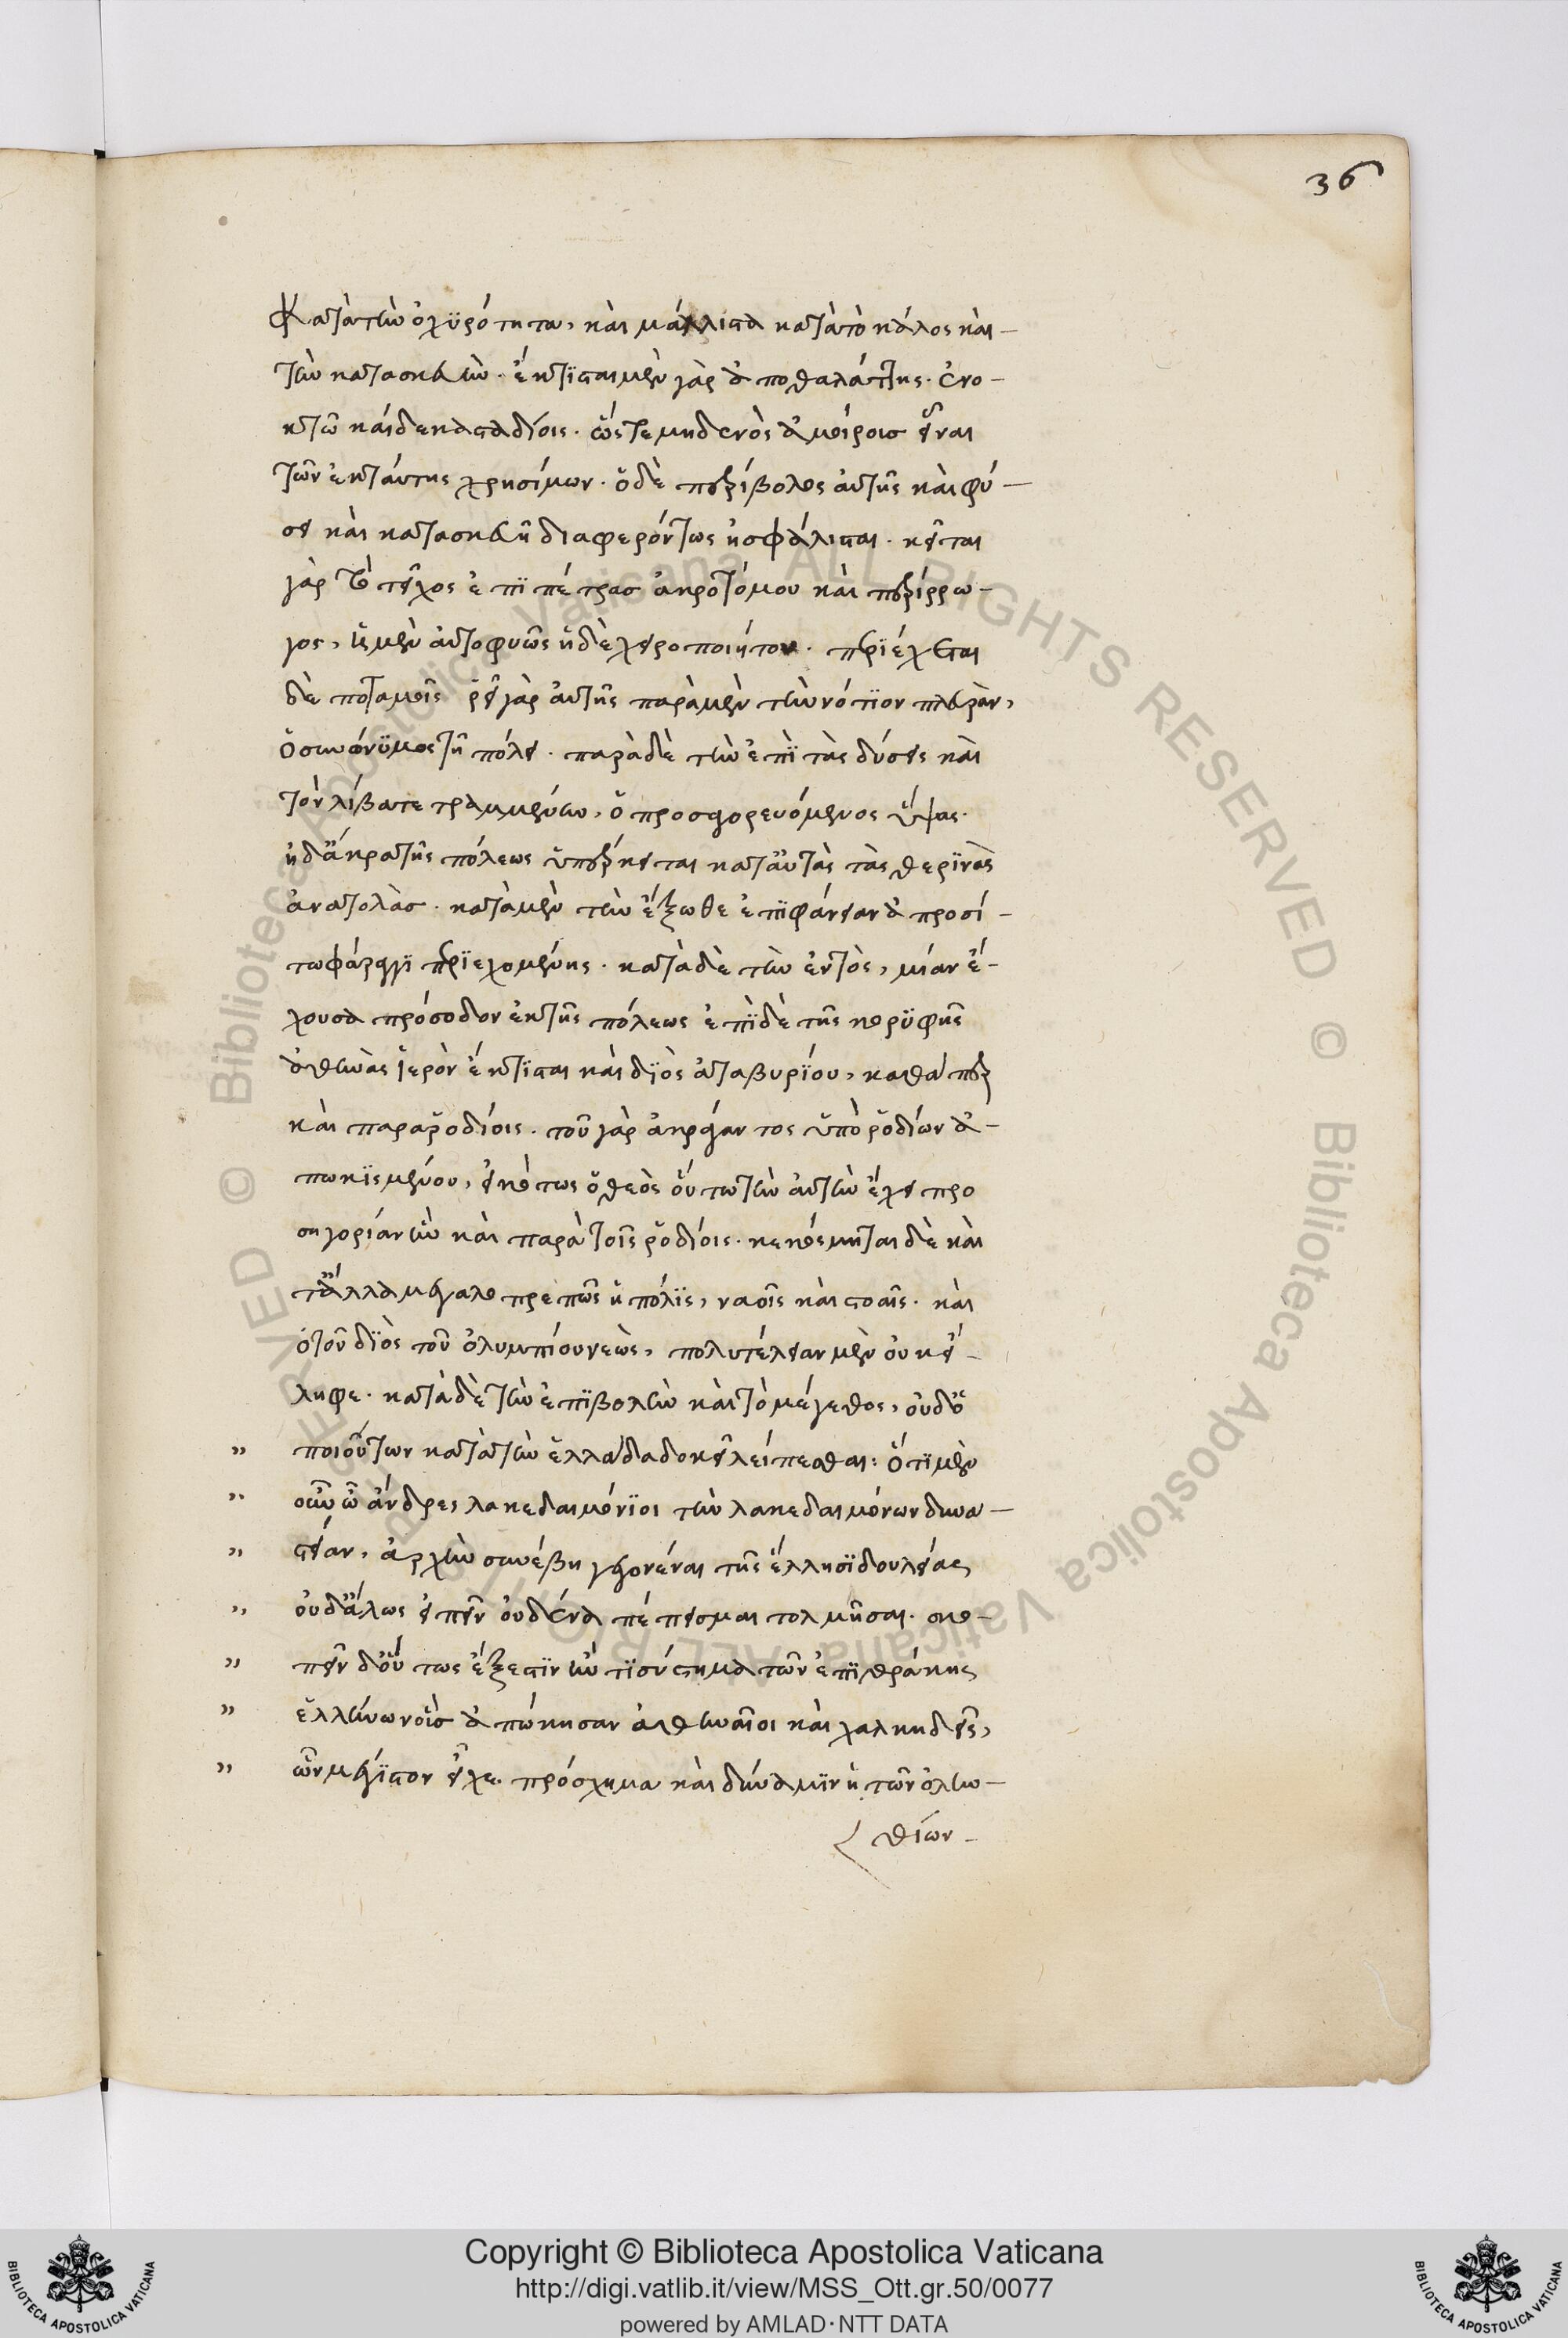 36
κατὰ τὴν ὀχϋρότητα, καὶ μάλλιστα κατὰ τὸ κάλος καὶ –
τὴν κατασκευὴν. ἔκτϊσται μὲν γὰρ ἀπο θαλάττης. ἐν ο –
κτῶ καίδεκα σταδίοις. ὥς τε μηδενὸς ἀμοίροισ εἶναι
τῶν ἐκ ταύτης χρησίμων. ὁ δὲ περίβολος αὐτῆς καὶ φύ –
σει καὶ κατασκευῆ διαφερόντως ἠσφάλισται. κεῖται
γὰρ τὸ τεῖχος ἐπϊ πέτρασ ἀκροτόμου καὶ περίρρω –
γος, ἧ μὲν αὐτοφυῶς ἧ δὲ χειροποιήτου. περϊέχεται
δὲ ποταμοῖς ῥεῖ γὰρ αὐτῆς παρὰ μὲν τὴν νότϊον πλευρὰν,
ὁ συνώνϋμος τῆ πόλει. παρὰ δὲ τὴν ἐπϊ τὰς δύσεις καὶ
τὸν λίβα τετραμμένην, ὁ προσαγορευόμενος ὕψας.
ἡ δ' ἄκρα τῆς πόλεως ὑπερκειται κατ' αὐτὰς τὰς θερϊνὰς
ἀνατολὰσ. κατὰ μὲν τὴν ἔξωθε ἐπϊφάνειαν ἀπροσί –
τω φάραγγϊ περϊεχομένης. κατὰ δὲ τὴν ἐντὸς, μίαν ἔ –
χουσα πρόσοδον ἐκ τῆς πόλεως ἐπϊ δὲ τῆς κορϋφῆς
ἀθηνᾶς ἱερὸν ἔκτϊσται καὶ δϊὸς ἀταβυρϊου, καθάπερ
καὶ παρα ῥοδίοις. τοῦ γὰρ ἀκραγάντος ὑπὸ ῥοδίων ἀ –
πωκϊσμένου, εἰκότως ὁ θεὸς οὕτω τὴν αὐτὴν ἔχει προ
σηγορίαν ἣν καὶ παρὰ τοῖς ῥοδίοις. κεκόσμηται δὲ καὶ
τἄλλα μεγαλοπρεπῶς ἡ πόλϊς, ναοῖς καὶ στοαῖς. καὶ
ὁ τοῦ δϊὸς τοῦ ὀλυμπίου νεὼς, πολυτέλειαν μὲν οὐκ εἴ –
ληφε. κατὰ δὲ τὴν ἐπϊβολὴν καὶ τὸ μέγεθος, οὐδ' ὁ
" ποιοῦτων κατὰ τὴν ἑλλάδα δοκεῖ λείπεσθαι: ὅτϊ μὲν
" οὖν ὦ ἄνδρες λακεδαιμόνϊοι τὴν λακεδαιμόνων δυνα –
" στείαν, ἀρχὴν συνέβη γεγονέναι τῆς ἕλλησϊ δουλείας
" οὐδ' ἄλως εἰπεῖν οὐδένα πέπεισμαι τολμῆσαι. σκο –
" πεῖν δ' οὕτως ἔξεστϊν ἦν τϊ σύστημα τῶν ἐπϊ θράκης
" ἑλλήνων οἷσ ἀπώκησαν ἀθηναῖοι καὶ χαλκηδεῖς,
" ὧν μέγϊστον εἶχε πρόσχημα καὶ δύναμϊν ἡ τῶν ὀλυν –
θίων –
Copyright © Biblioteca Apostolica Vaticana
http://digi.vatlib.it/view/MSS_Ott.gr.50/0077
powered by AMLAD·NTT DATA
BIBLIOTECA APOSTOLICA VATICANA
BIBLIOTECA APOSTOLICA VATICANA
Biblioteca Apostolica Vaticana ALL RIGHTS RESERVED ©